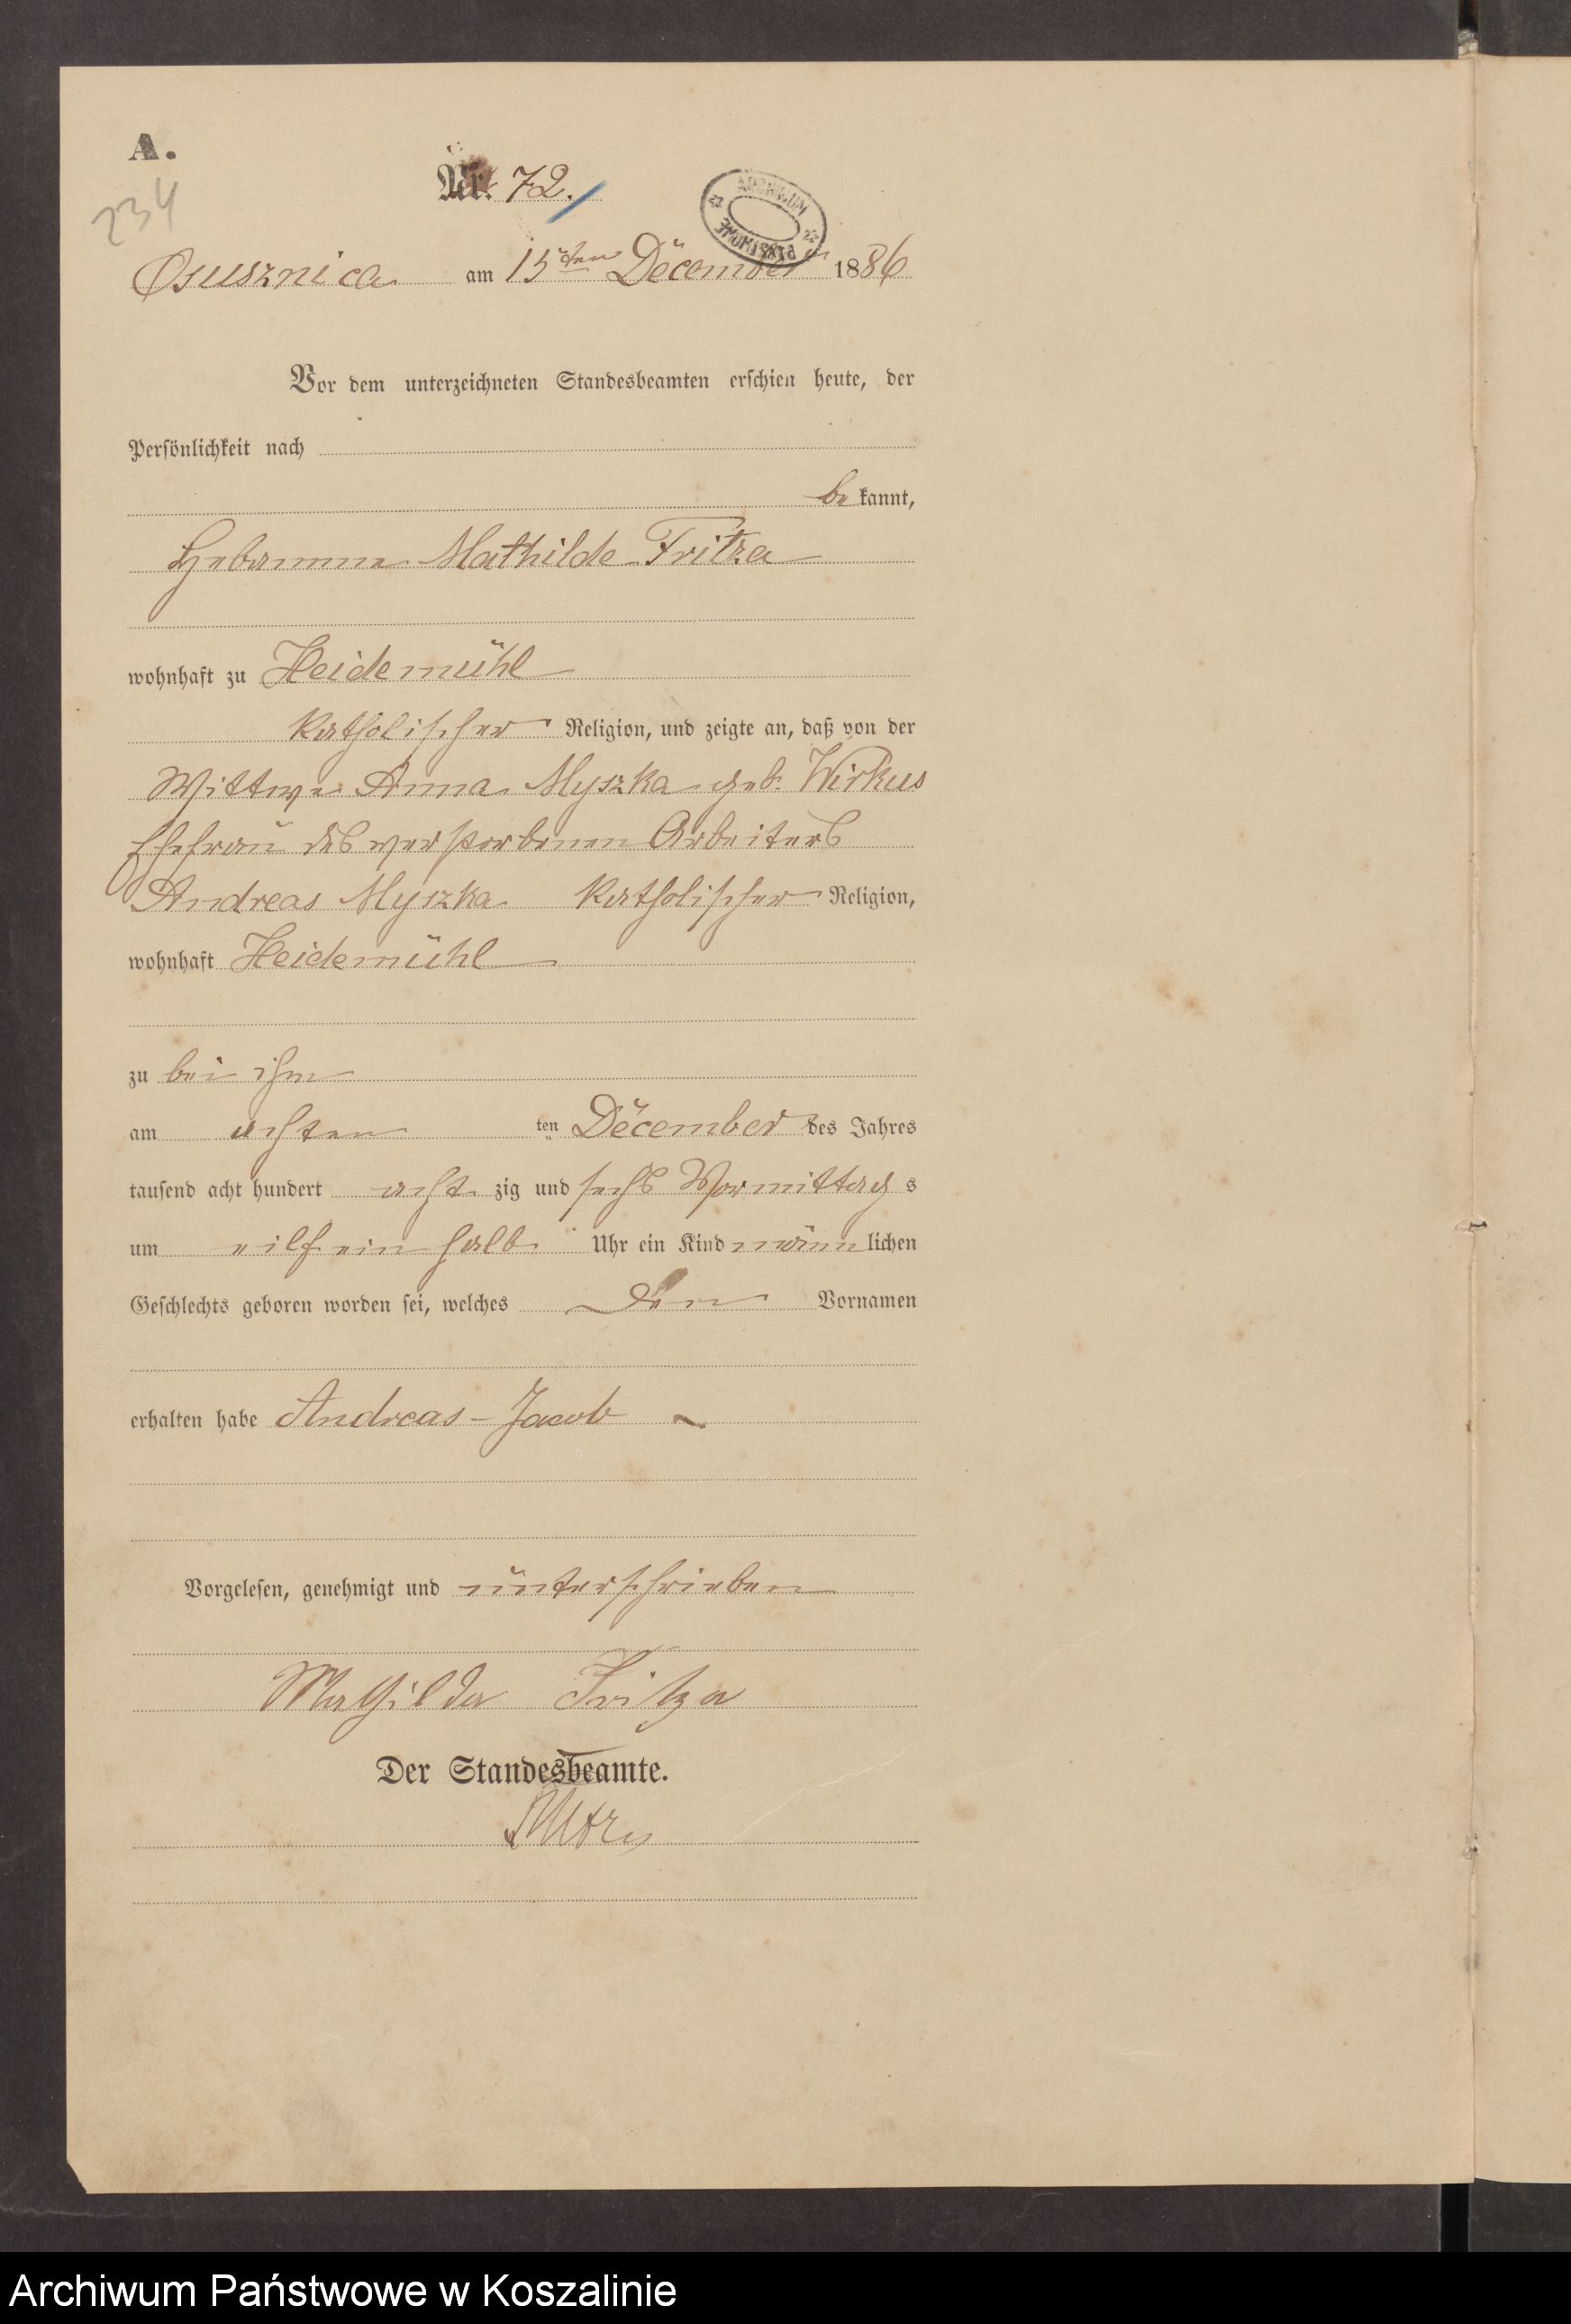 A.
234
Nr. 72.
ARCHIWUM
PAŃSTWOWE
Osusznica am 15ten December 1886
Vor dem unterzeichneten Standesbeamten erschien heute, der
Persönlichkeit nach
be kannt,
Hebamme Mathilde Fritza
wohnhaft zu Heidemühl
katholischer Religion, und zeigte an, daß von der
Wittwe Anna Myszka geb. Wirkus
Ehefrau des verstorbenen Arbeiters
Andreas Myszka katholischer Religion,
wohnhaft Heidemühl
zu bei ihm
am achten ten December des Jahres
tausend acht hundert acht zig und sechs Vormittag s
um eilf ein halb Uhr ein Kind männ lichen
Geschlechts geboren worden sei, welches den Vornamen
erhalten habe Andreas-Jacob
Vorgelesen, genehmigt und unterschrieben
Mathilda Fritza
Der Standesbeamte.
Archiwum Państwowe w Koszalinie